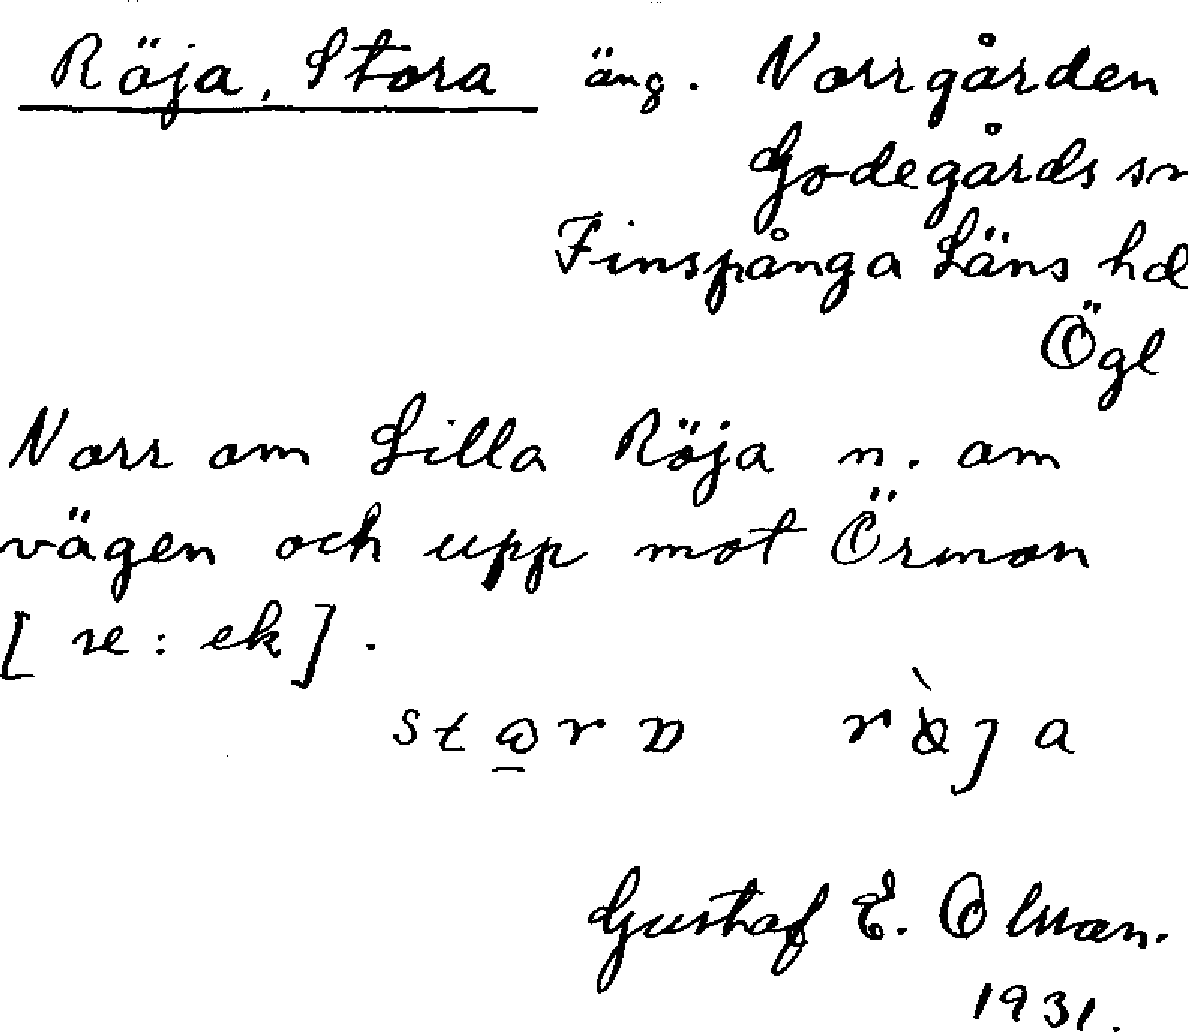 Röja, Stora äng. Norrgården
Godegårds sn
Finspånga Läns hd
Ögl
Norr om Lilla Röja n. om
vägen och upp mot Örmon
[se: ek].
Gustaf E. Olman.
1931.